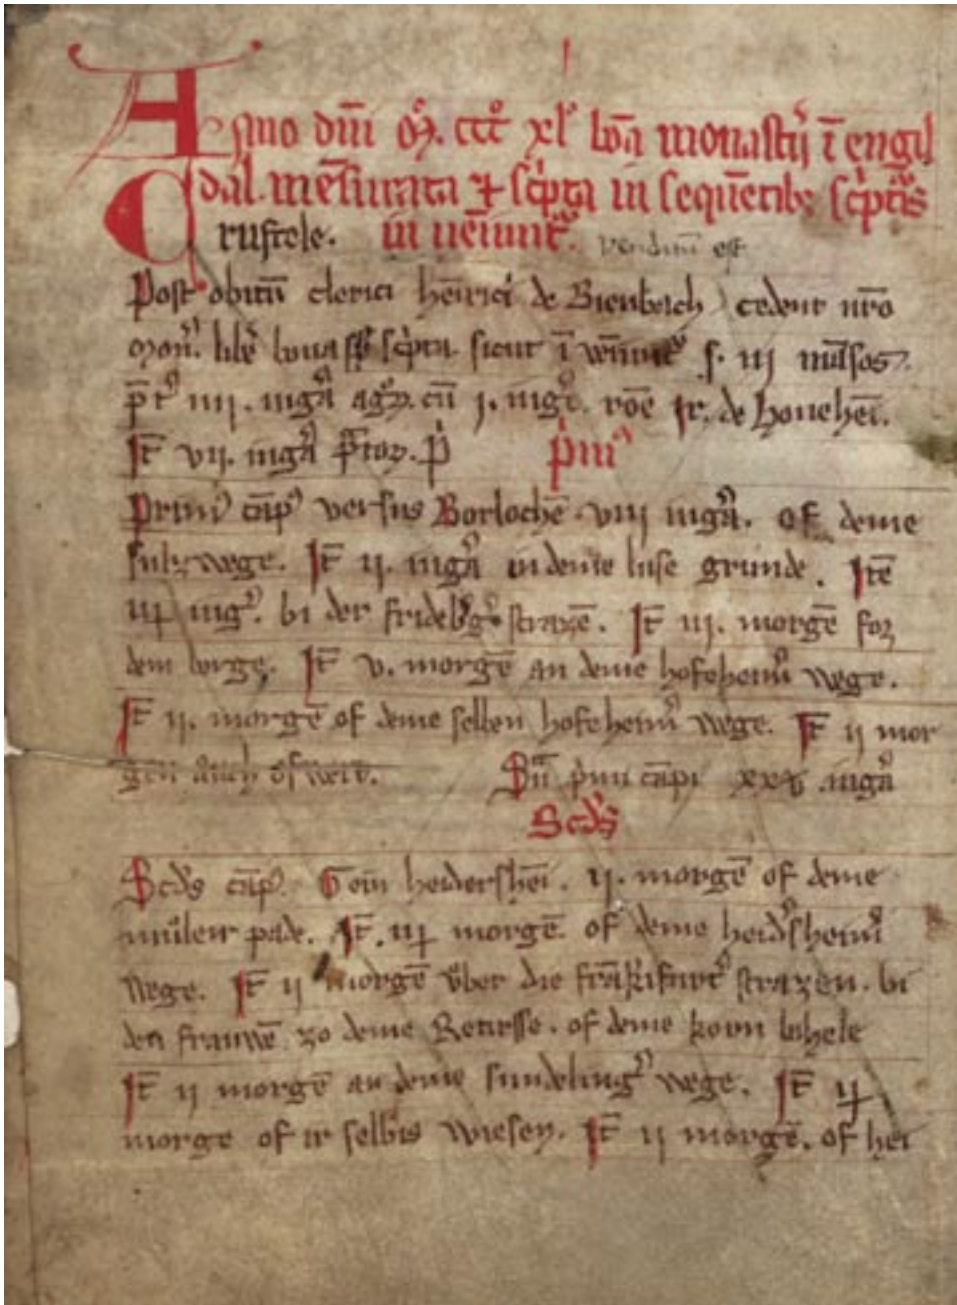 Anno dn̄i M°. ccc° xl° bōa monast'ij ī engil
dal. mēsurata ⁊ sc'pta in sequētib; sc'ptis
Crustele. in veīunt᷑. vendītū est
Post obitū clerici hēnrici de Bienbach cedent nr̄o
mon'. sc'pta. sicut ī s. iij māsos
p̄t' iiij. iug'a ag'. cū j. iug'e. rōe de houeheī.
It̄ vij. iug'a p'toꝝ. p' prim'
Prim' cāp' versus Borlochē. viij iug'a. of deme
sulzwege. It̄ ij. iug'a in deme luse grunde. Itē
iij iug'. bi der frideb'g' strazē. It̄ iij. morgē for
dem It̄ v. morgē an deme hofeheim' wege.
It̄ ij. morgē of deme selben hofeheim' wege. It̄ ij mor
gen auch Sm̄ primi cāpi xxv iug'a
Scd's
Scd's cāp'. Gein heidersheī. ij. morgē of deme
mulen pade. It̄. iij morgē. of deme heid'sheim'
wege. It̄ ij morgē vber die frākifurt' strazen. bi
den frauwē zo deme Retirsse. of deme
It̄ ij morgē an deme sundeling' wege. It̄ ij
morge of ir selbis wiesen. It̄ ij morgē. of hei